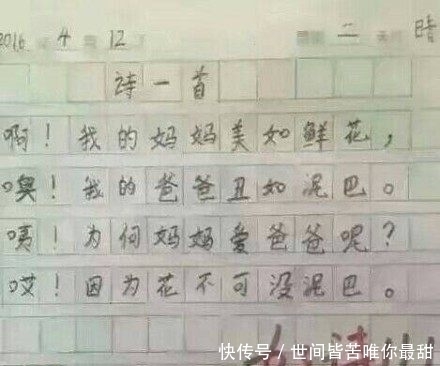 2016 4 12 二 晴
诗一首
啊！我的妈妈美如鲜花，
噢！我的爸爸丑如泥巴。
咦！为何妈妈爱爸爸呢？
哎！因为花不可没泥巴。
快传号/世间皆苦唯你最甜